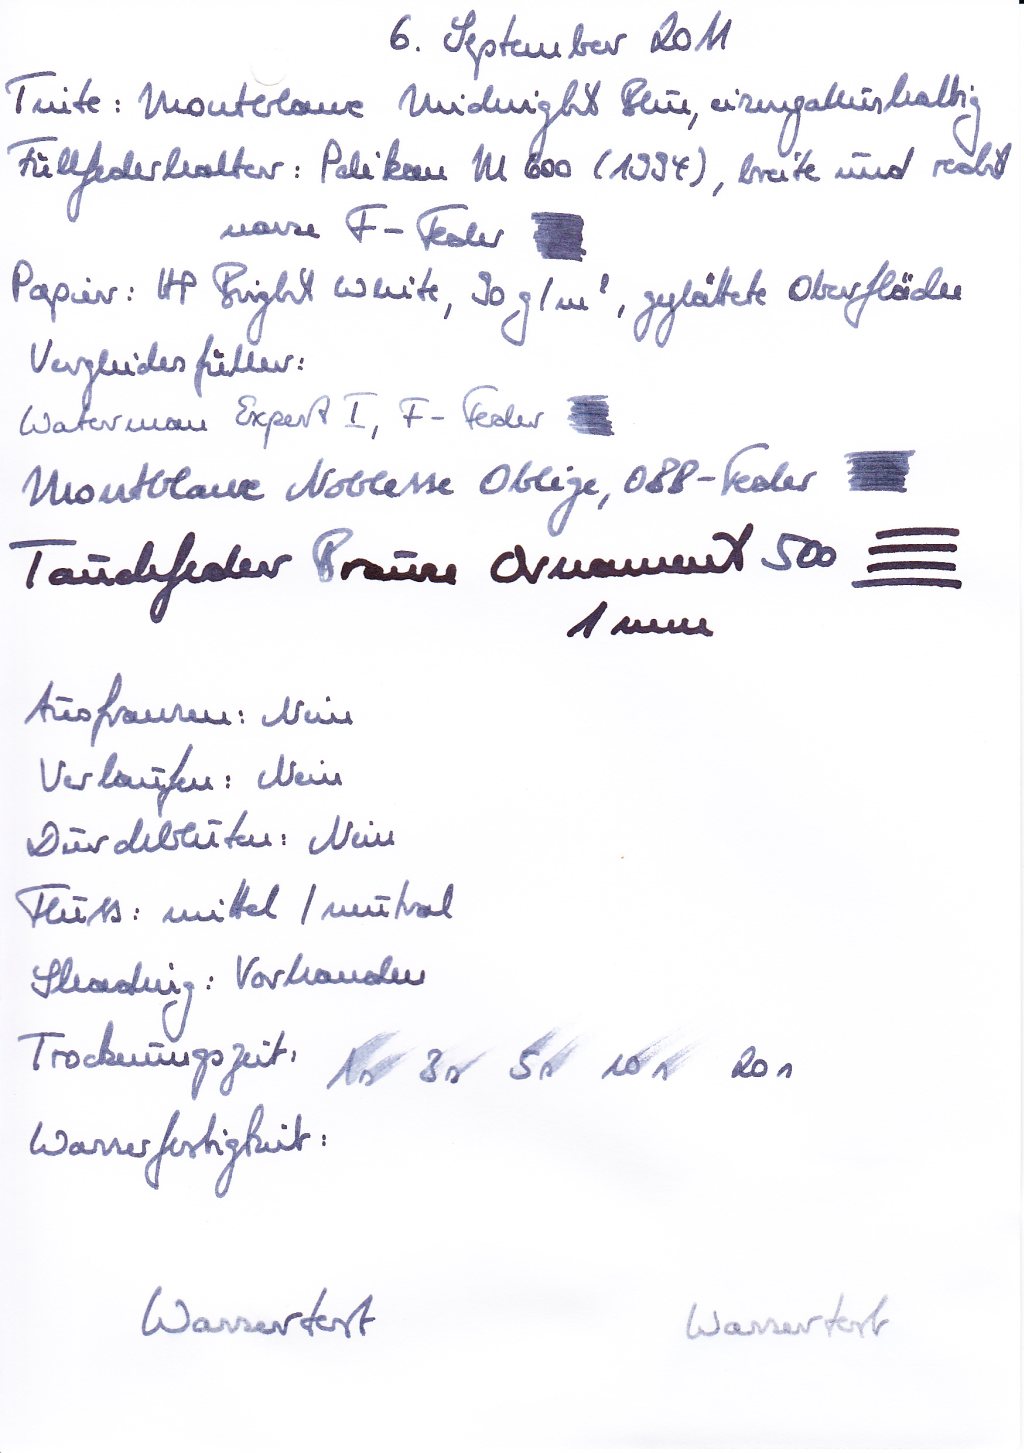 6. September 2011
Tinte: Montblanc Midnight Blue, eisengallushaltig
Füllfederhalter: Pelikan M 600 (1994), breite und recht
nasse F-Feder
Papier: HP Bright White, 90 g/m², geglättete Oberfläche
Vergleichsfüller:
Waterman Expert I, F-Feder
Montblanc Noblesse Oblige, OBB-Feder
Tauchfeder Brause Ornament 500
1 mm
Ausfransen: Nein
Verlaufen: Nein
Durchbluten: Nein
Fluss: mittel / neutral
Shading: Vorhanden
Trocknungszeit: 1s 3s 5s 10s 20s
Wasserfestigkeit:
Wassertest Wassertest